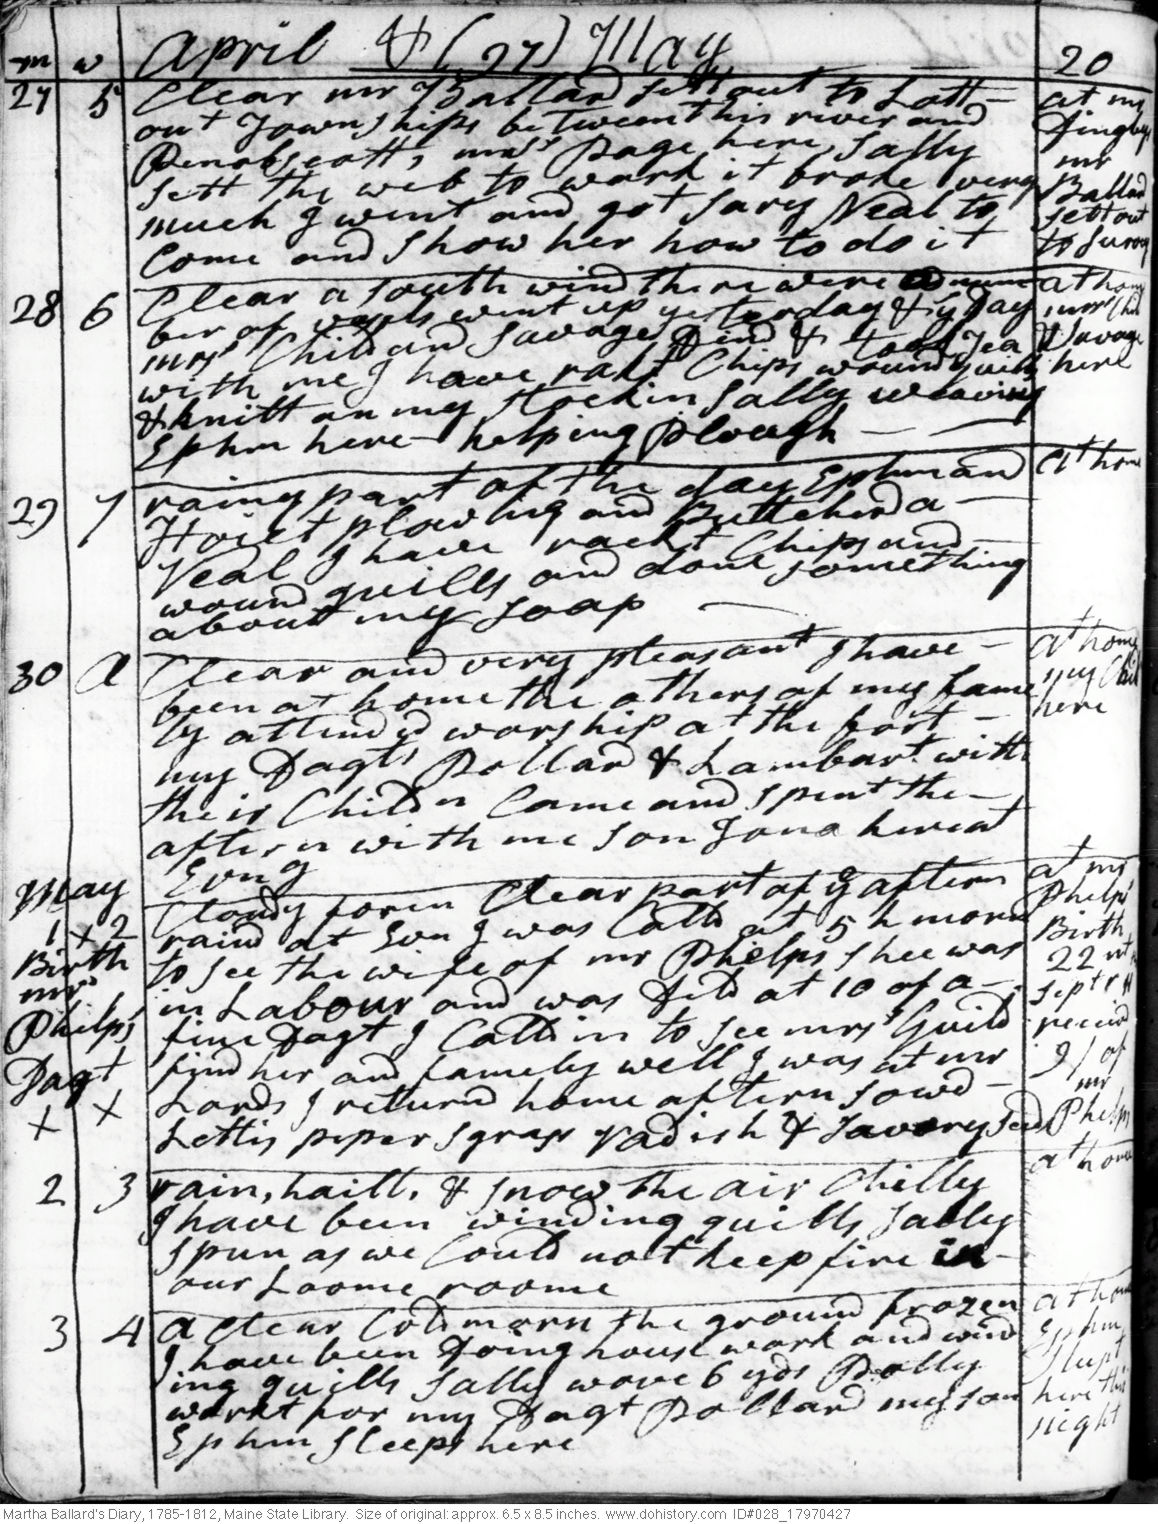 m w April & (27) May 20
27 5 Clear mr Ballard sett out to Lott
out Townships between this river and
Penobscott, mrss Page here, Sally
sett the web to work it broke very
much I went and got Sary Neal to
Come and show her how to do it
at my
mr
Ballad
sett out
to survey
28 6 Clear a south wind there were a num
ber of vesels went up yesterday & ys Day
mrss Child and Savage Dind & took Tea
with me I have rakt Chips wound quills
& knitt on my stockin Sally weaving
Ephm here helping Plough
at home
mrss Child
& Savage
here
29 7 rainy part of the day Ephm and
Hoist plowing and Buttcherd a
Veal I have rackt Chips and
wound quills and done something
about my soap
at home
30 A Clear and very pleasant I have
been at home the others of my fame
ly attendd worship at the fort
my Dagts Pollard & Lambart with
their Childn Came and spent the
aftern with me son Jona here at
Evng
at home
my Child
here
May
1 + 2
Birth
mrs
Phelps'
Dagt
x x
Cloudy foren Clear part of ye aftern
raind at Evn I was Calld at 5 h morn
to see the wife of mr Phelps shee was
in Labour and was Dild at 10 of a
fine Dagt I Calld in to see mrss Guild
find her and famely well I was at mr
Lords I returnd home aftern sowd
Lettis peper sgrass radish & Savory seed
at mr
Phelps
Birth
22nd
Sept r
receivd
9/ of
mr
Phelps
2 3 rain, haill, & snow the air Chilly
I have been winding quills Sally
spun as we Could not keep fire in
our Loome roome
at home
3 4 a Clear Cold morn the ground frozen
I have been Doing house work and wind
ing quills Sally wove 6 yds Dolly
workt for my Dagt Pollard my son
Ephm sleeps here
at home
Ephm
slept
here this
night
Martha Ballard's Diary, 1785-1812, Maine State Library. Size of original: approx. 6.5 x 8.5 inches. www.dohistory.com ID#028_17970427